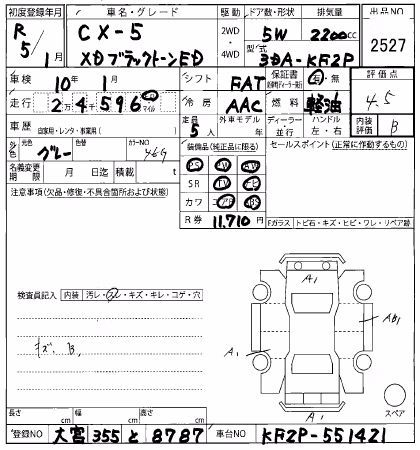 初度登録年月 車名・グレード 駆動 ドア数・形状 排気量 出品NO
R 5/1月 CX-5 2WD・4WD 5W 2200cc 2527
XDブラックトーンED 型式 3DA-KF2P
車検 10年1月 シフト FAT 保証書 有・無 評価点
走行 2万4千596 キロ マイル 冷房 AAC 燃料 軽油 4.5
車歴 自家用・レンタ・事業用( ) 定員 5人 外車モデル 年 ディーラー・並行 ハンドル 左・右 内装評価 B
外色 元色 グレー 色替 カラーNO 46G 装備品(純正品に限る) セールスポイント(正常に作動するもの)
名義変更期限 月 日迄 積載 t PS PW AW
注意事項(欠品・修復・不具合箇所および状態) SR TV ナビ
カワ エアB ABS
R券 11,710円 Fガラス トビ石・キズ・ヒビ・ワレ・リペア跡
A1
検査員記入 内装 汚レ・スレ・キズ・キレ・コゲ・穴
キズ、B,
A1
A1
スペア
長さ cm 幅 cm 高さ cm
登録NO 大宮 355 と 8787 車台NO KF2P-551421